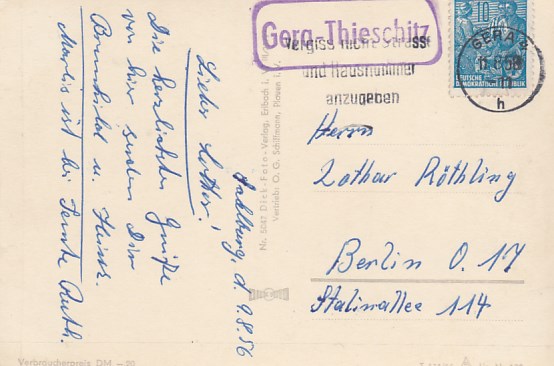 Gera-Thieschitz
Vergiss nicht Strasse
und Hausnummer
anzugeben
10
DEUTSCHE
DEMOKRATISCHE REPUBLIK
GERA 2
h
Herrn
Lothar Röthling
Berlin O. 17
Stalinallee 114
d. 9.8.56
Lieber Lothar!
Die herzlichsten Grüße
von hier senden Dir
Brunhild u. Heinz.
Marlis ist bei Tante Ruth.
Nr. 5047 Dick-Foto-Verlag, Erlbach i. V.
Vertrieb: O. G. Schiffmann, Plauen i. V.
Verbraucherpreis DM —20